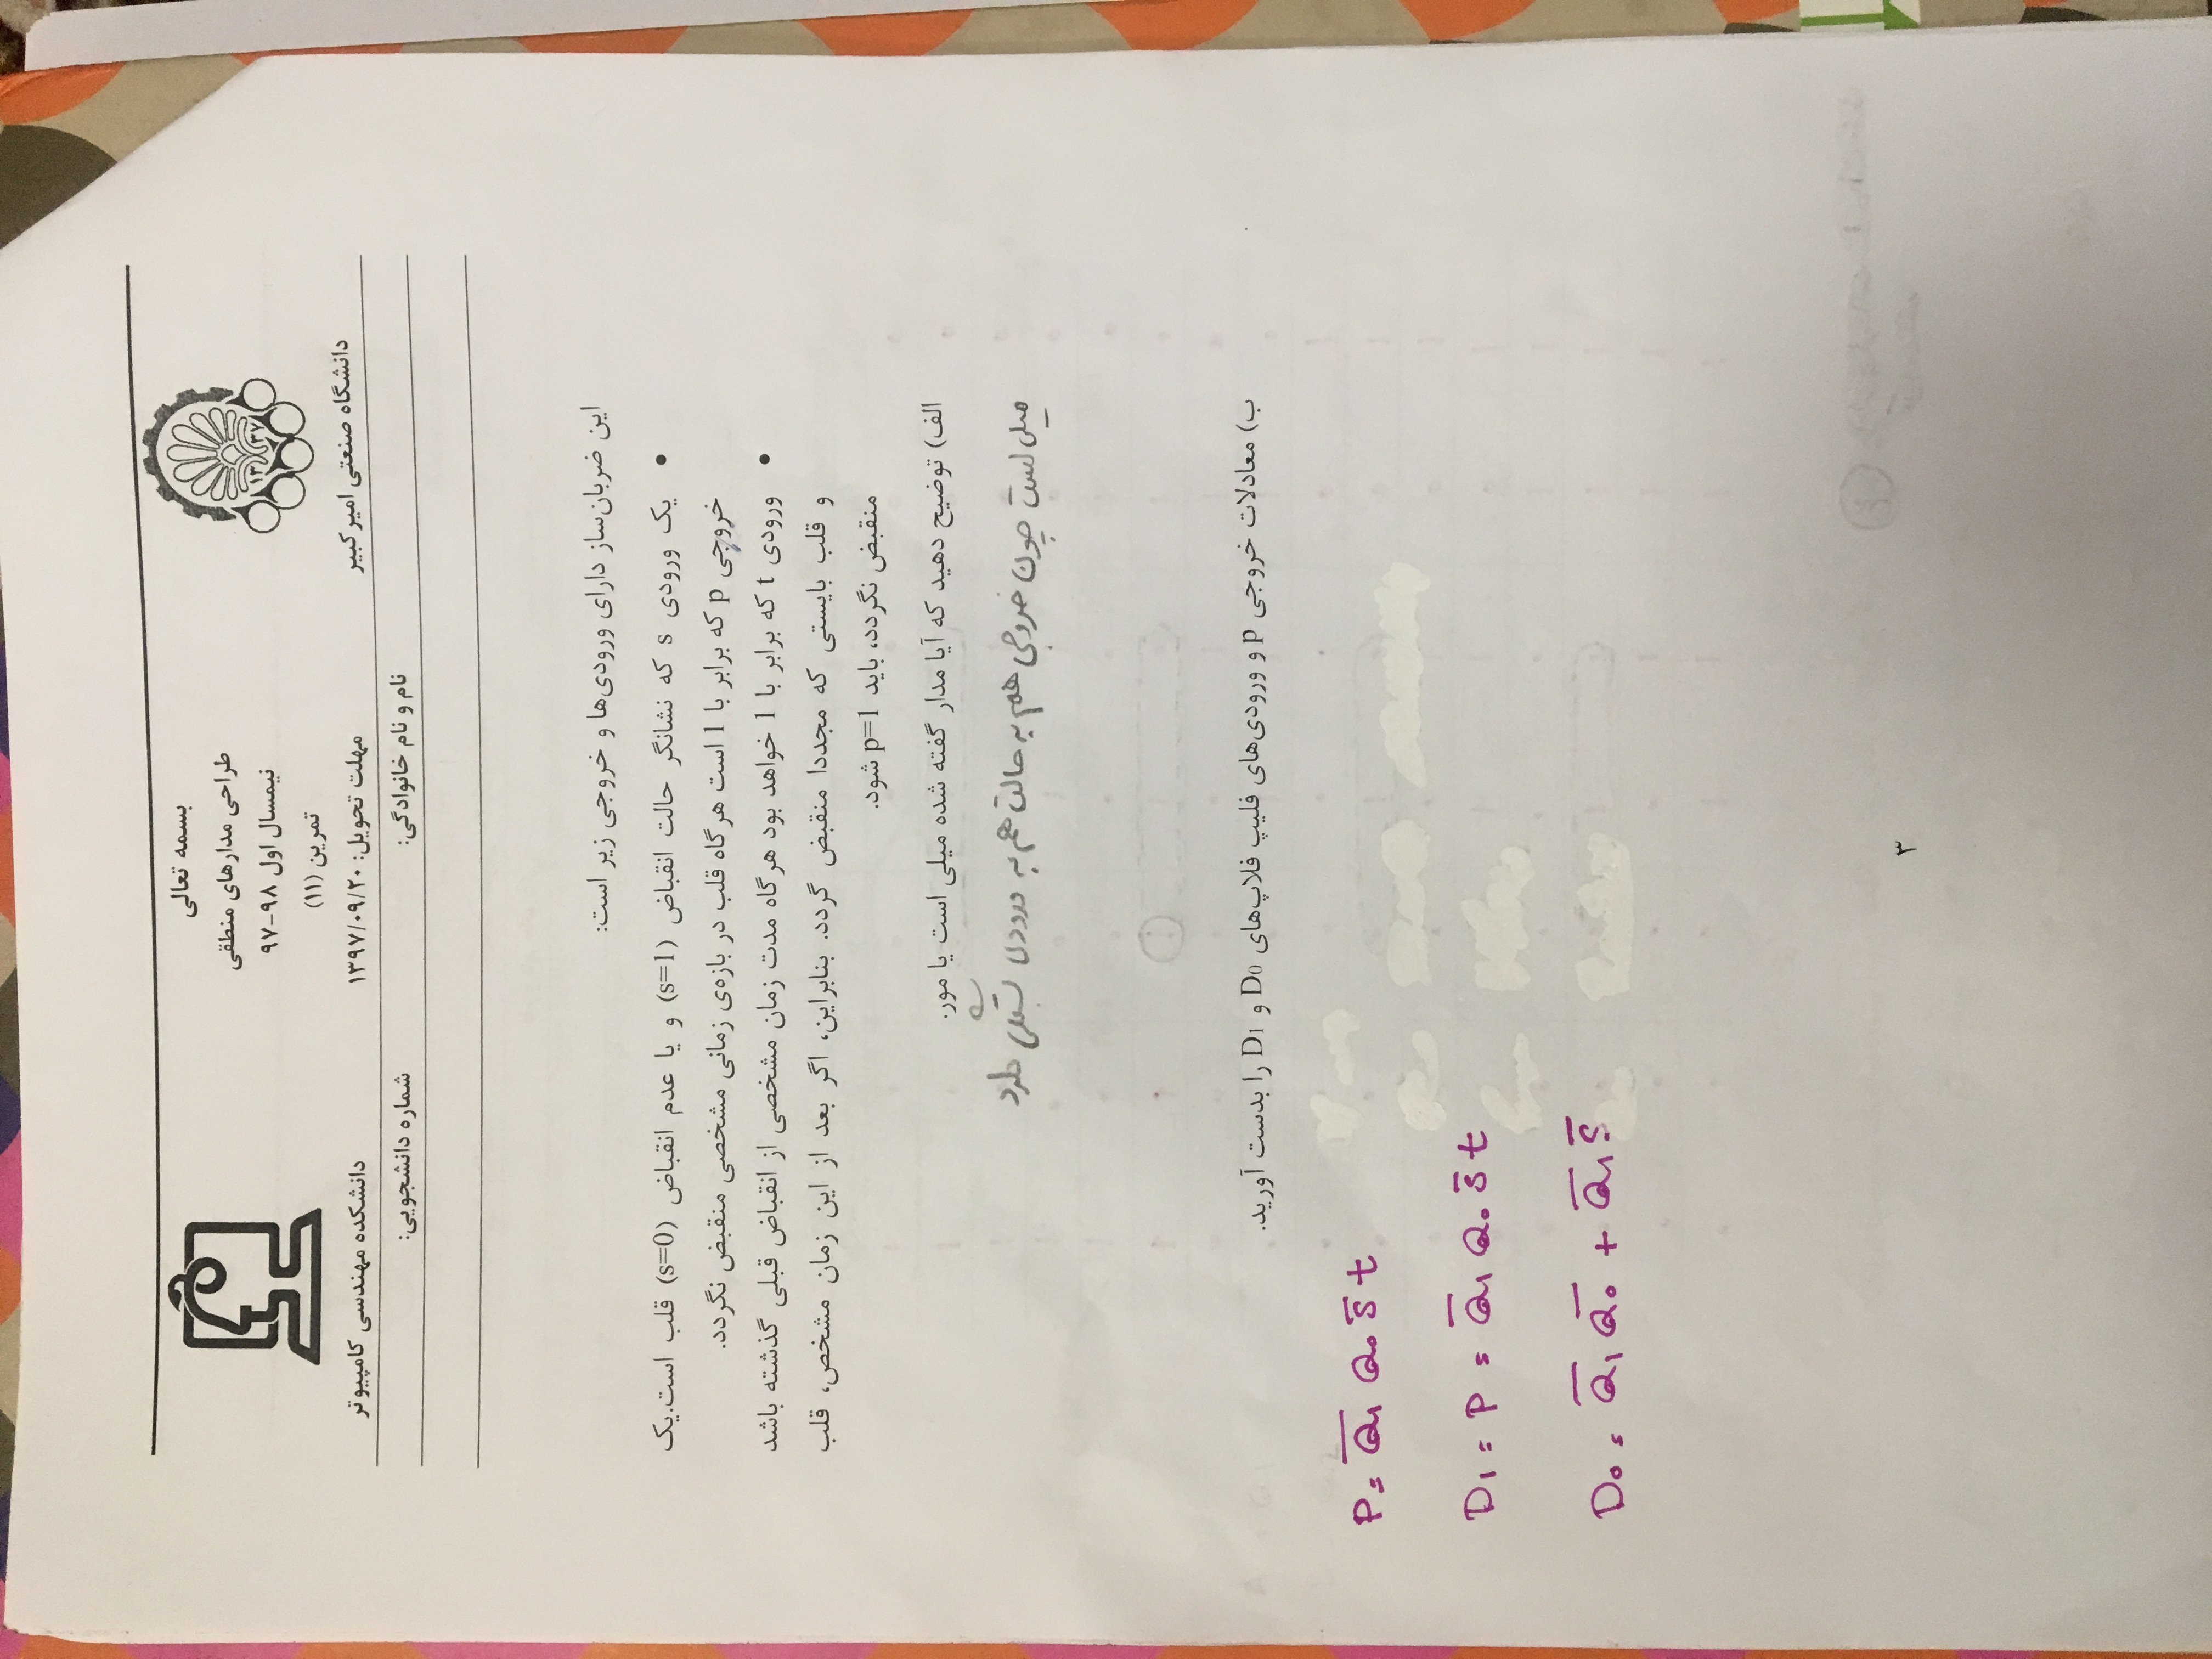 بسمه تعالی
طراحی مدارهای منطقی
نیمسال اول ۹۸-۹۷
تمرین (۱۱)
مهلت تحویل: ۱۳۹۷/۰۹/۲۰
۱۳۳۷
دانشگاه صنعتی امیرکبیر
دانشکده مهندسی کامپیوتر
نام و نام خانوادگی: شماره دانشجویی:
این ضربان‌ساز دارای ورودی‌ها و خروجی زیر است:
• یک ورودی s که نشانگر حالت انقباض (s=1) و یا عدم انقباض (s=0) قلب است.یک
خروجی p که برابر با 1 است هرگاه قلب در بازه‌ی زمانی مشخصی منقبض نگردد.
• ورودی t که برابر با 1 خواهد بود هرگاه مدت زمان مشخصی از انقباض قبلی گذشته باشد
و قلب بایستی که مجددا منقبض گردد. بنابراین، اگر بعد از این زمان مشخص، قلب
منقبض نگردد، باید p=1 شود.
الف) توضیح دهید که آیا مدار گفته شده میلی است یا مور.
میلی است چون خروجی هم به حالت هم به ورودی بستگی دارد
ب) معادلات خروجی p و ورودی‌های فلیپ فلاپ‌های D0 و D1 را بدست آورید.
P = Q̅₁ Q₀ s̅ t
D₁ = P = Q̅₁ Q₀ s̅ t
D₀ = Q̅₁ Q̅₀ + Q̅₁ s̅
۳